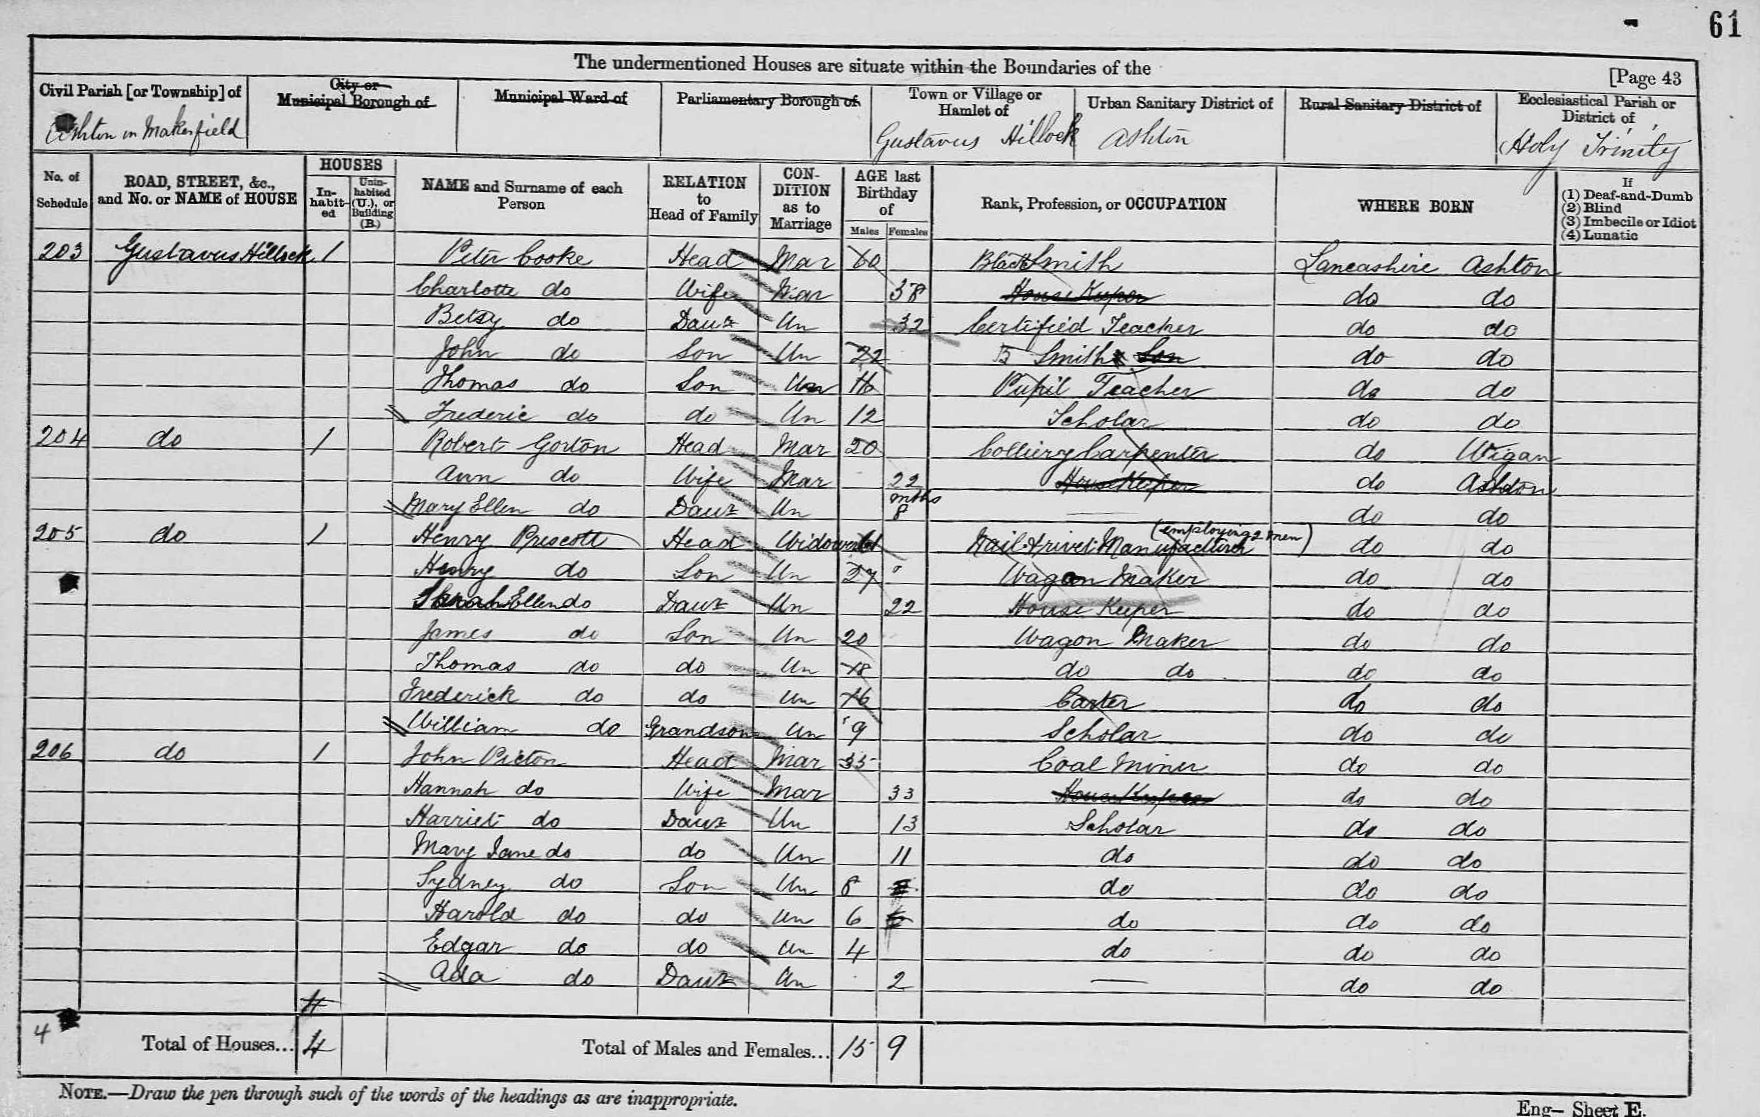 61
The undermentioned Houses are situate within the Boundaries of the [Page 43
Civil Parish [or Township] of City or Municipal Borough of Municipal Ward of Parliamentary Borough of Town or Village or Hamlet of Urban Sanitary District of Rural Sanitary District of Ecclesiastical Parish or District of
Ashton in Makerfield Gustavus Hillock Ashton Holy Trinity
No. of Schedule ROAD, STREET, &c., and No. or NAME of HOUSE HOUSES In-habit-ed Unin-habited (U.), or Building (B.) NAME and Surname of each Person RELATION to Head of Family CON-DITION as to Marriage AGE last Birthday of Males Females Rank, Profession, or OCCUPATION WHERE BORN If (1) Deaf-and-Dumb (2) Blind (3) Imbecile or Idiot (4) Lunatic
203 Gustavus Hillock 1 Peter Cooke Head Mar 60 Black Smith Lancashire Ashton
Charlotte do Wife Mar 58 House Keeper do do
Betsy do Daur Un 32 Certified Teacher do do
John do Son Un 22 B Smith Son do do
Thomas do Son Un 16 Pupil Teacher do do
Frederic do do Un 12 Scholar do do
204 do 1 Robert Gorton Head Mar 20 Colliery Carpenter do Wigan
Ann do Wife Mar 22 House Keeper do Ashton
Mary Ellen do Daur Un mths 8 do do
205 do 1 Henry Prescott Head Widower Nail & rivet Manufacturer (employing 2 men) do do
Henry do Son Un 27 Wagon Maker do do
Sarah Ellen do Daur Un 22 House Keeper do do
James do Son Un 20 Wagon Maker do do
Thomas do do Un 18 do do do do
Frederick do do Un 16 Carter do do
William do Grandson Un 9 Scholar do do
206 do 1 John Picton Head Mar 35 Coal Miner do do
Hannah do Wife Mar 33 House Keeper do do
Harriet do Daur Un 13 Scholar do do
Mary Jane do do Un 11 do do do
Sydney do Son Un 8 do do do
Harold do do Un 6 do do do
Edgar do do Un 4 do do do
Ada do Daur Un 2 — do do
4
4 Total of Houses... 4 Total of Males and Females... 15 9
NOTE.—Draw the pen through such of the words of the headings as are inappropriate.
Eng— Sheet E.